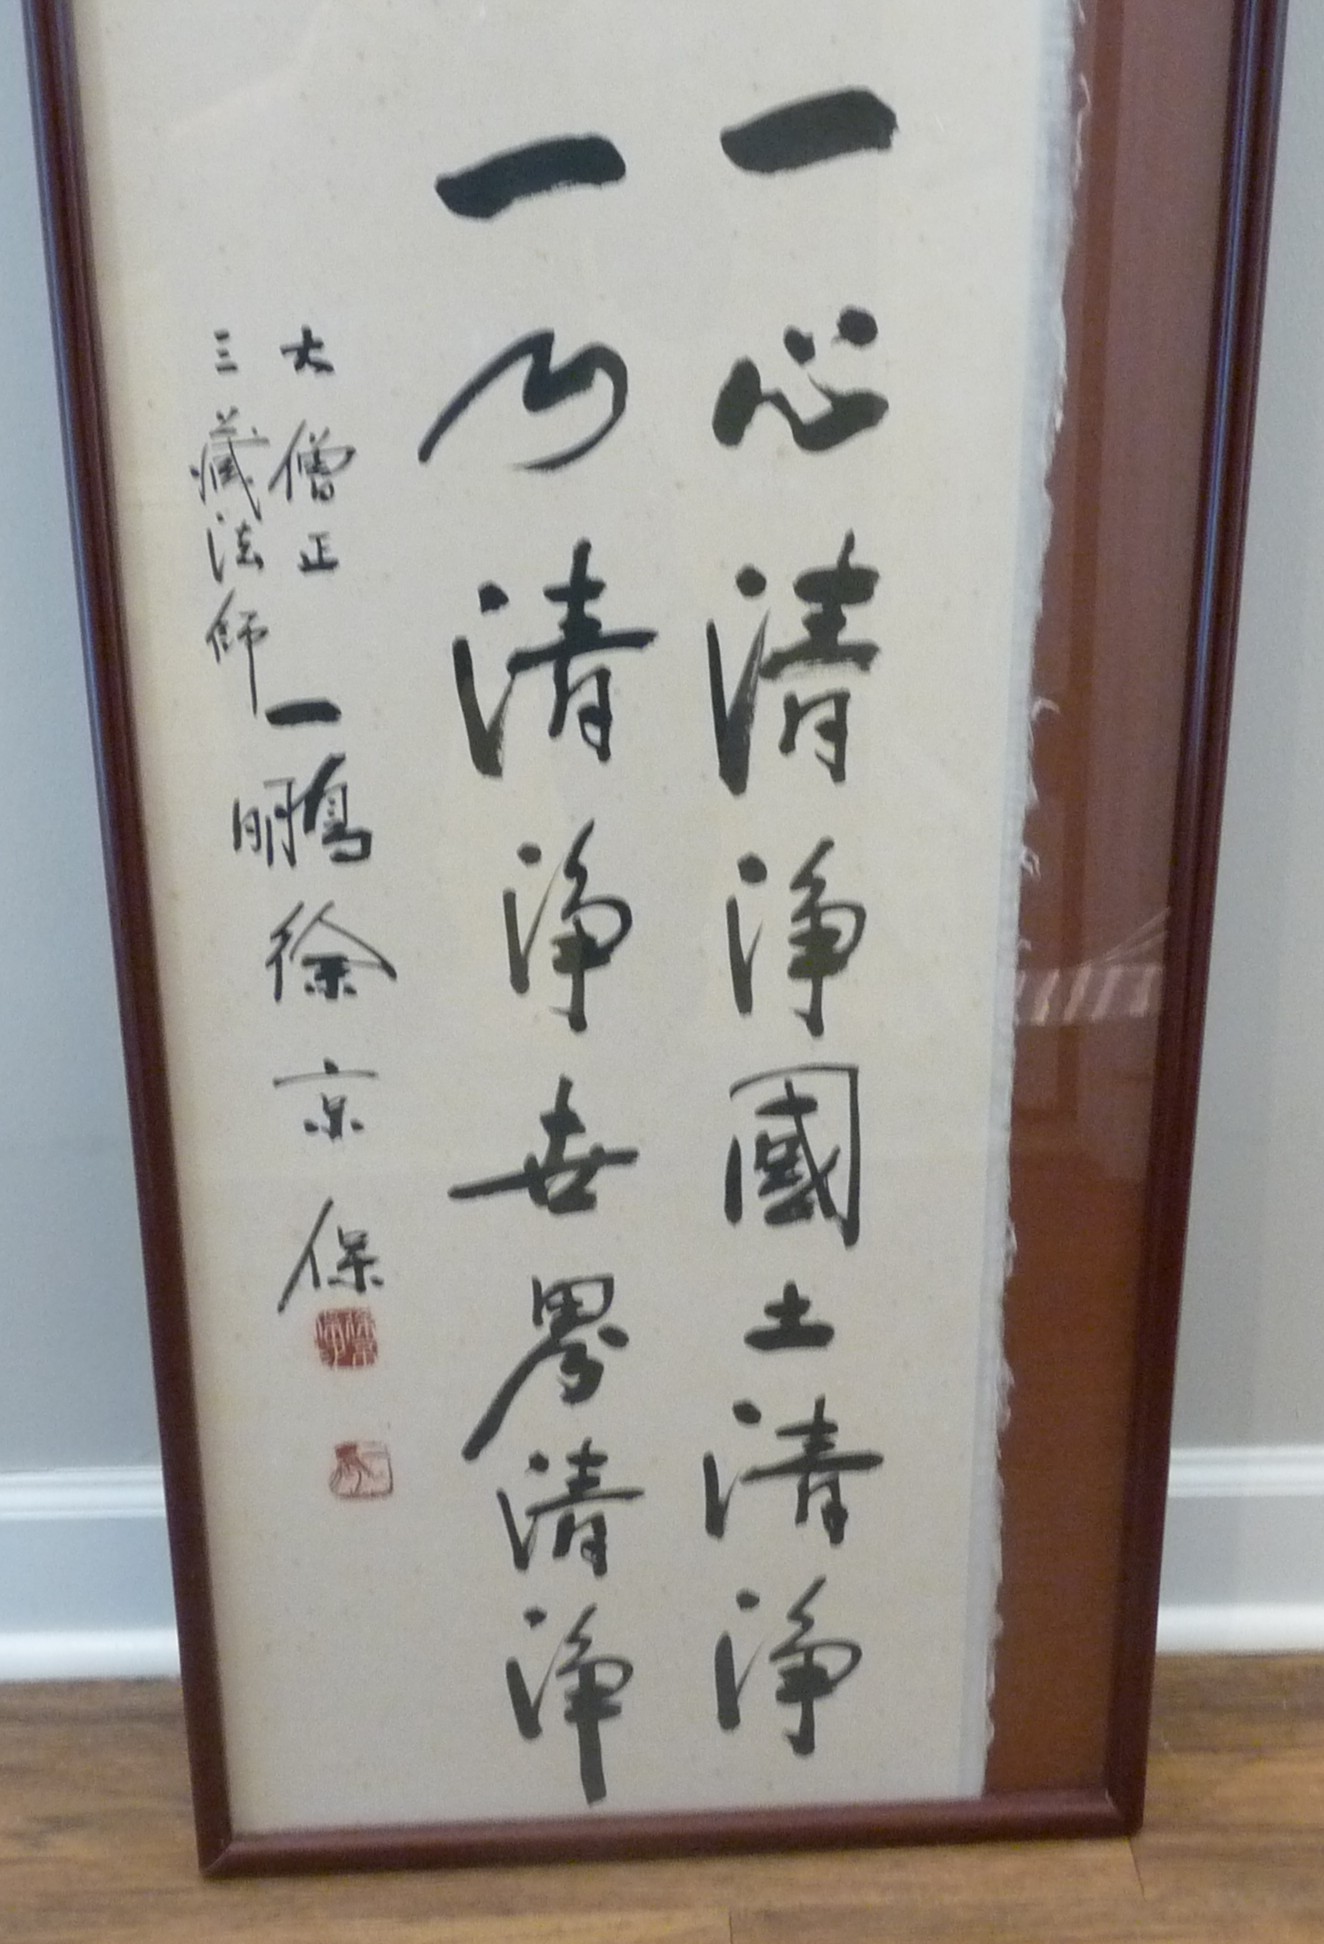 一心清淨國土清淨
一乃清淨世界清淨
大僧正
三藏法師
一鵬徐京保